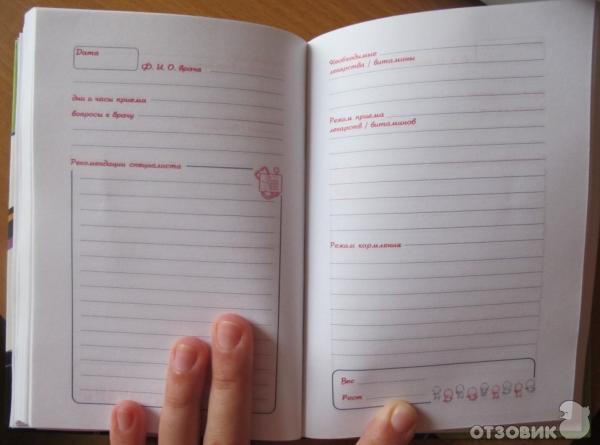 Дата
Ф. И. О. врача
дни и часы приема
вопросы к врачу
Рекомендации специалиста
Необходимые
лекарства / витамины
Режим приема
лекарств / витаминов
Режим кормления
Вес
Рост
ОТЗОВИК